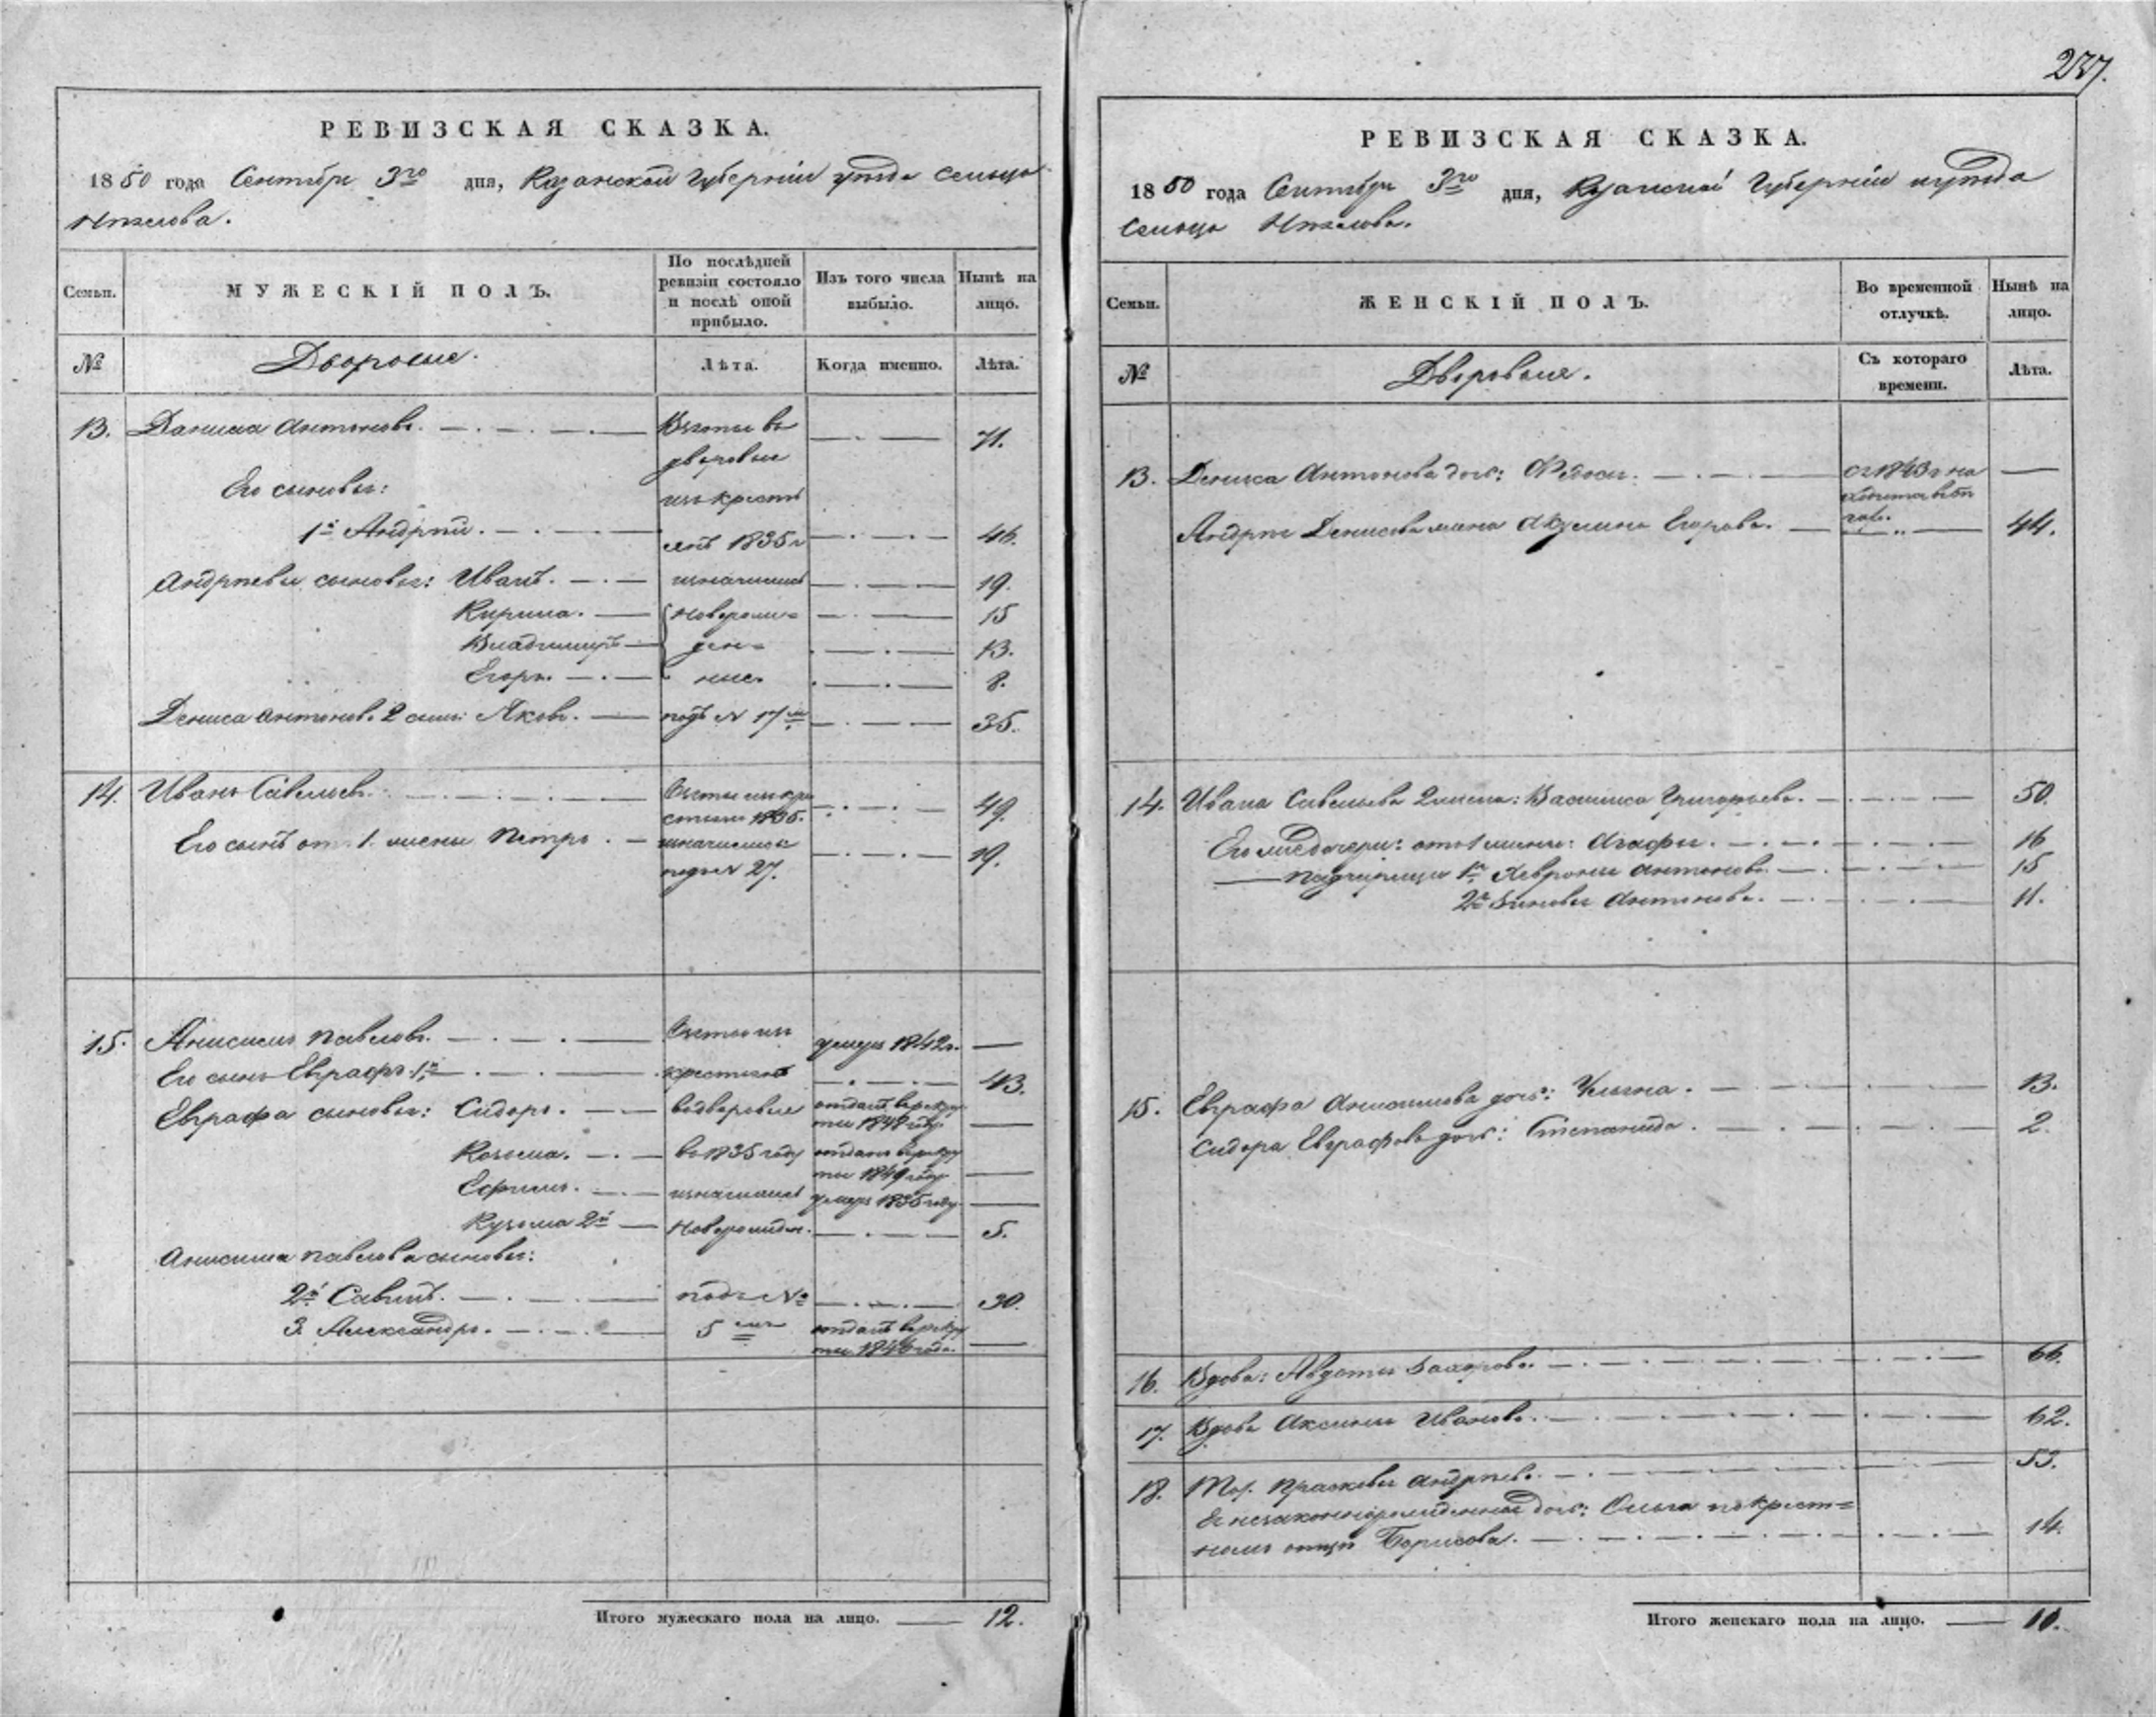 237.
РЕВИЗСКАЯ СКАЗКА.
1850 года Сентября 3го дня, Казанской Губернiи уѣзда сельца
РЕВИЗСКАЯ СКАЗКА.
1850 года Сентября 3го дня, Казанской Губернiи и уѣзда
сельца
Семьи.
МУЖЕСКIЙ ПОЛЪ.
По послѣдней
ревизiи состояло
и послѣ оной
прибыло.
Изъ того числа
выбыло.
Нынѣ на
лицо.
№
Дворовые.
Лѣта.
Когда именно.
Лѣта.
13. Антоновъ. Взяты въ 71.
дворовые
Его сыновья: изъ крестъ
1й Андрей. янъ 1835 г 46.
Андреевы сыновья: Иванъ. 19.
Кирила. новорож= 15
Владимиръ ден= 13.
Егоръ. ные. 8.
Дениса Антонова 2 сынъ Яковъ. подъ № 17м 35.
14. Иванъ Савельевъ. Взяты изъ кре 49.
стьянъ 1835.
Его сынъ от 1. жены Петръ. 19.
подъ № 27.
15. Анисимъ Павловъ. Взяты изъ умеръ 1842 г.
Его сынъ Евграфъ 1й крестьянъ 43.
Евграфа сыновья: Сидоръ. въ дворовые отданъ въ рекру
ты году
Козьма. въ 1835 году отданъ въ рекру
ты 1849 году
Ефимъ. умеръ 1835 году
Кузьма 2й новорожден. 5.
Анисима Павлова сыновья:
2й Савинъ. подъ № 30.
3. Александръ. 5мъ отданъ въ рекру
ты года
Итого мужескаго пола на лицо. 12.
Семьи.
ЖЕНСКIЙ ПОЛЪ.
Во временной
отлучкѣ.
Нынѣ на
лицо.
№
Дворовые.
Съ котораго
времени.
Лѣта.
13. Дениса Антонова дочь: съ 1843 г на
Андрея Денисова жена Акулина Егорова. 44.
14. Ивана Савельева 2 жена: Василиса Григорьева. 50.
дочери: отъ 1 жены: Агафья. 16
падчерицы 1я Хевронья Антонова. 15
2я Зиновья Антонова. 11.
15. Евграфа Анисимова дочь: Ульяна. 13.
Сидора Евграфова дочь: Степанида. 2.
16. Вдова: Авдотья Захарова. 66.
17. Вдова Аксинья Иванова. 62.
18. Прасковья Андреева. 53.
Ея незаконнорожденная дочь: Ольга по крест=
номъ отцѣ Борисова. 14.
Итого женскаго пола на лицо. 10.